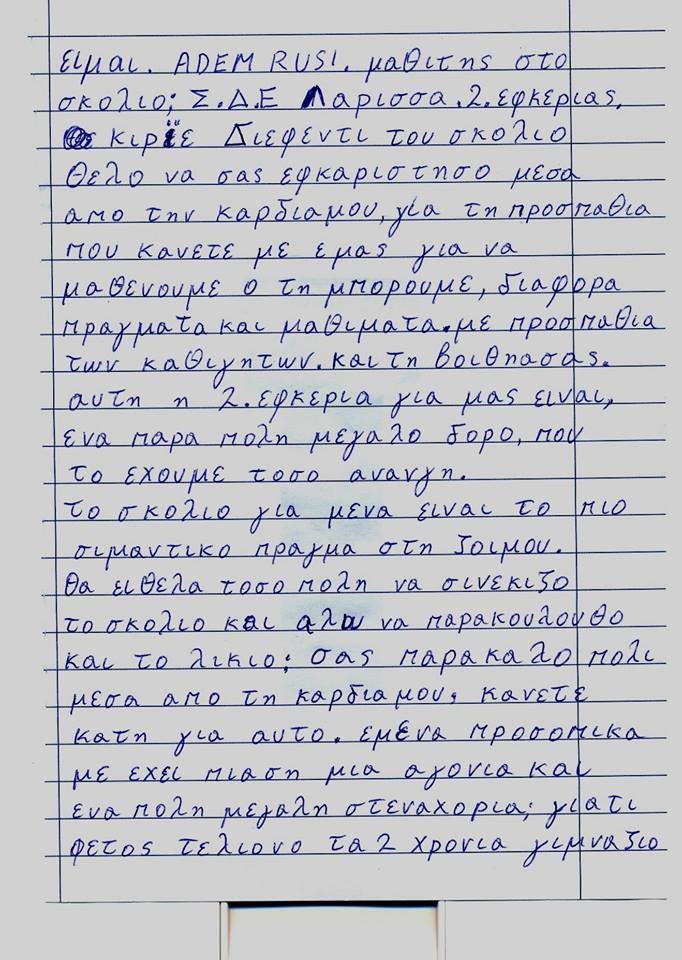 ειμαι. ADEM RUSI. μαθιτης στο
σκολιο; Σ.Δ.Ε Λαρισσα.2.εφκεριας.
κιριε Διεφεντι του σκολιο
Θελο να σας εφκαριστησο μεσα
απο την καρδιαμου, για τη προσπαθια
που κανετε με εμας για να
μαθενουμε ο τη μπορουμε, διαφορα
πραγματα και μαθιματα. με προσπαθια
των καθιγητων. και τη βοιθησασ.
αυτη η 2. εφκερια για μας ειναι,
ενα παρα πολη μεγαλο δορο, που
το εχουμε τοσο ανανγη.
το σκολιο για μενα ειναι το πιο
σιμαντικο πραγμα στη ζοιμου.
θα ειθελα τοσο πολη να σινεκιζο
το σκολιο και αλω να παρακουλουθο
και το λικιο; σας παρακαλο πολι
μεσα απο τη καρδιαμου, κανετε
κατη για αυτο. εμενα προσοπικα
με εχει πιαση μια αγονια και
ενα πολη μεγαλη στεναχορια; γιατι
φετος τελιονο τα 2 χρονια γιμναζιο